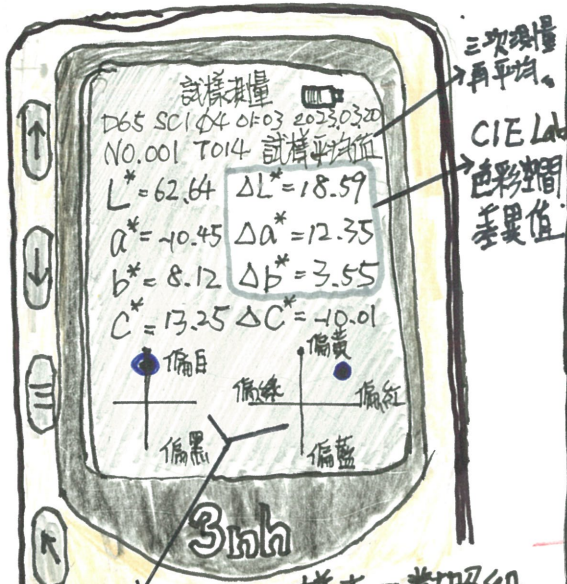 試樣測量
D65 SCI Φ4 01:03 2023.03.20
NO.001 T014 試樣平均值
L*=62.64 ΔL*=18.59
a*=-10.45 Δa*=12.35
b*=8.12 Δb*=3.55
C*=13.25 ΔC*=-10.01
偏白
偏黑
偏黃
偏綠 偏紅
偏藍
3nh
三次測量
再平均。
CIE Lab
色彩空間
差異值